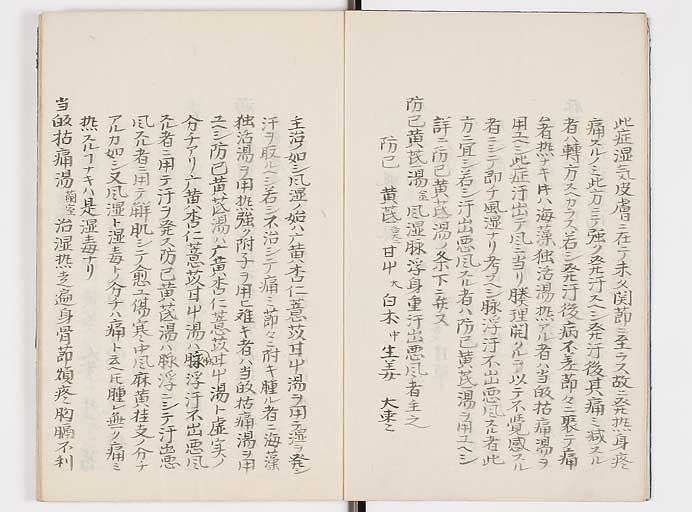 此症湿気皮膚ニ在テ未タ関節ニ至ラス故ニ発热身疼
痛スルノミ此方ニテ強ク発汗スヘシ発汗後其痛ミ減スル
者ハ轉方スヘカラス若シ発汗後病不差節々ニ聚テ痛
者热ナキ片ハ海藻独活湯热アル者ハ当皈拈痛湯ヲ
用ユヘシ此症汗出テ風ニ当リ腠理開クルヲ以テ不覚感スル
者ニシテ即チ風湿ナリ考フヘシ脉浮汗不出悪風スル者此
方ニ宜シ若シ汗出悪風スル者ハ防已黄芪湯ヲ用ユヘシ
詳ニ防已黄芪湯ノ条下ニ弁ス
防已黄芪湯 風湿脉浮身重汗出悪風者主之
防已 黄芪 甘艸大 白朮中 生姜 大棗
主治ノ如シ風湿ノ始ハ广黄杏仁薏苡甘艸湯ヲ用テ湿ヲ発シ
汗ヲ取ルヘシ若シ不治シテ痛ミ節々ニ附キ腫ル者ニ海藻
独活湯ヲ用热強ク附子ヲ用ヒ难キ者ハ当皈拈痛湯ヲ用
ユヘシ防已黄芪湯ハ广黄杏仁薏苡甘艸湯ト虚実ノ
分チアリ广黄杏仁薏苡甘艸湯ハ脉浮汗不出悪風
スル者ニ用テ汗ヲ発ス防已黄芪湯ハ脉浮ニシテ汗出悪
風スル者ニ用テ解肌シテ愈ユ傷寒中風麻黄桂支ノ分チ
アルカ如シ又風湿ト湿毒トノ分チハ痛ト云ヘ𪜈腫レ無ク痛ミ
热スルヿナキハ是湿毒ナリ
当皈拈痛湯 治湿热走遍身骨節煩疼胸膈不利